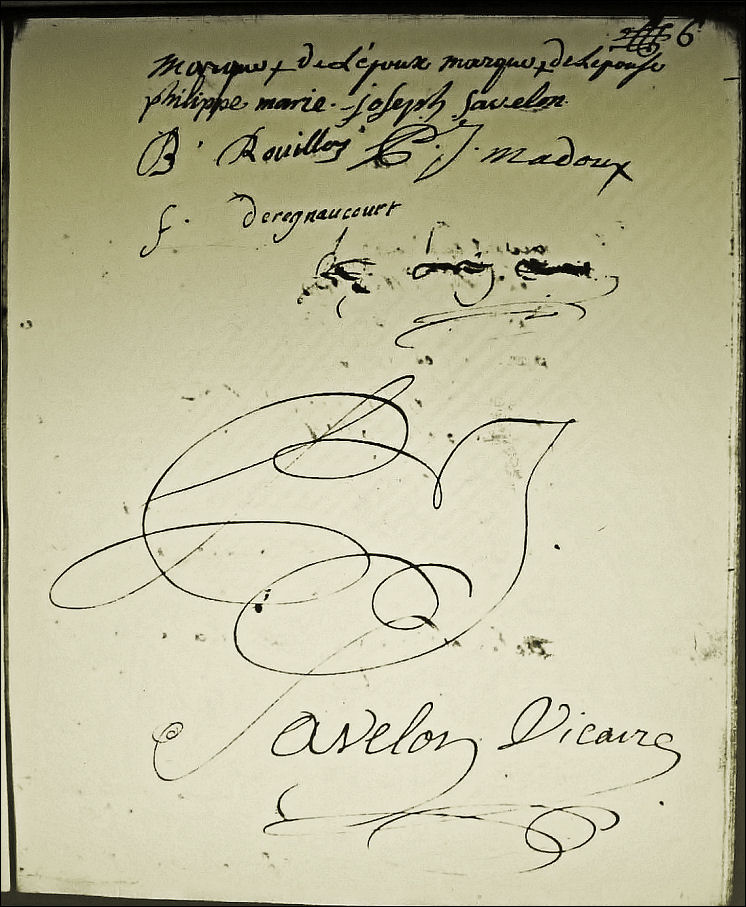 6
marque + de l'époux marque + de lepouse
philippe marie joseph Savelon
B. Rouilloy P J. madoux
f. deregnaucourt
J Savelon Vicaire